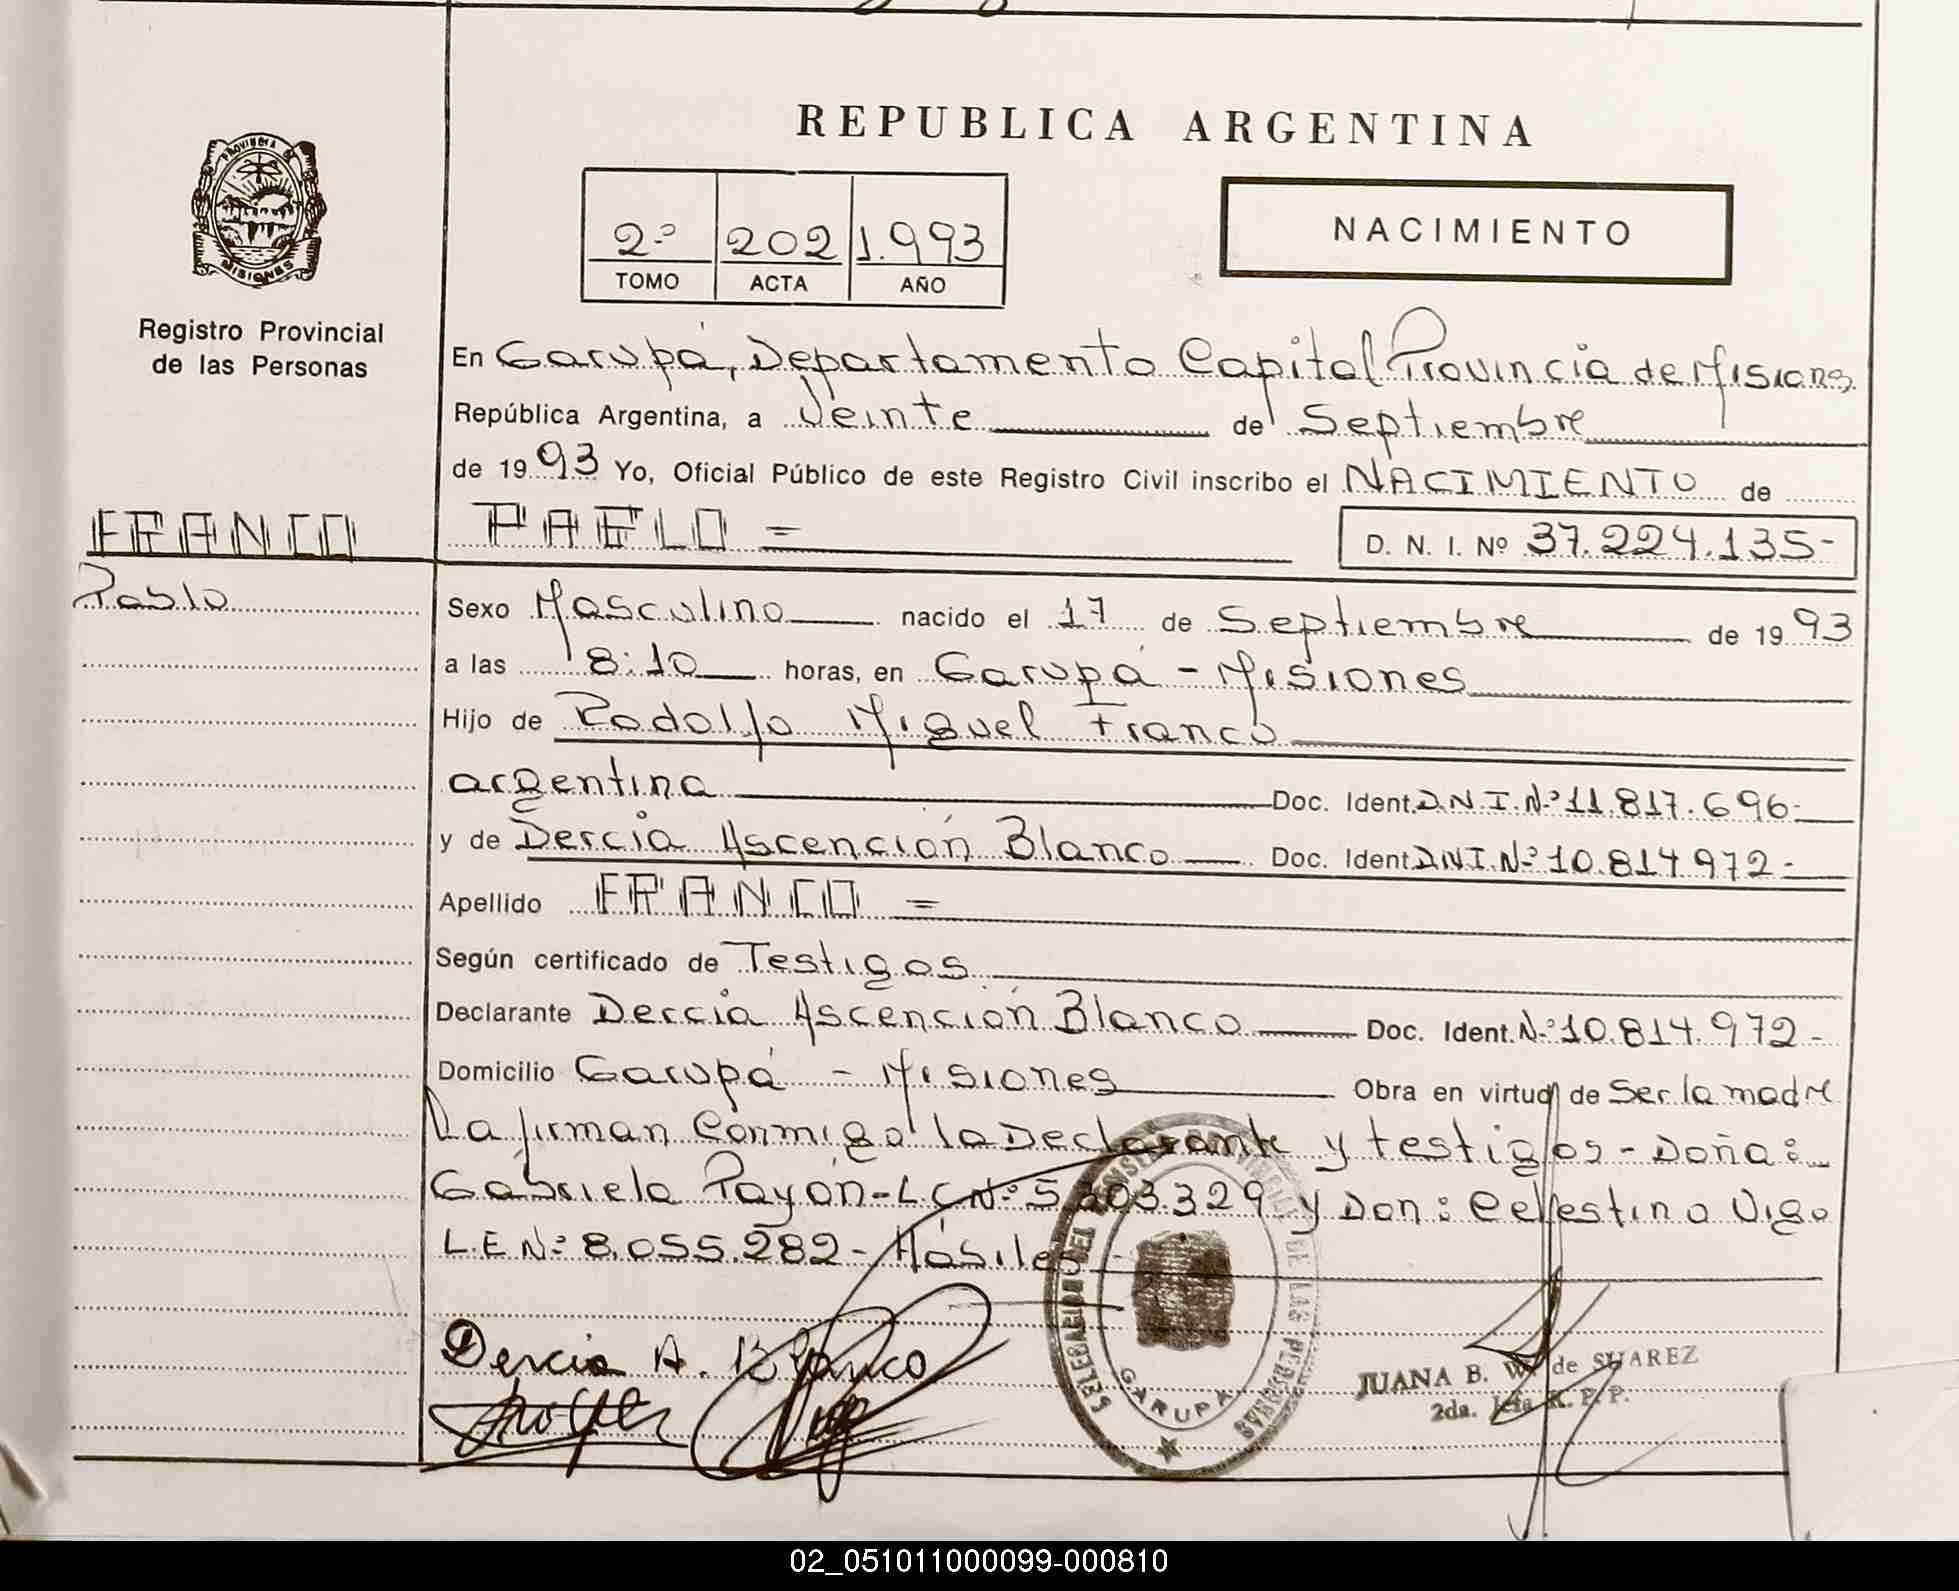 REPUBLICA ARGENTINA
PROVINCIA DE
MISIONES
Registro Provincial
de las Personas
2º 202 1.993
TOMO ACTA AÑO
NACIMIENTO
En Garupá, Departamento Capital Provincia de Misiones
República Argentina, a Veinte de Septiembre
de 1993 Yo, Oficial Público de este Registro Civil inscribo el NACIMIENTO de
FRANCO PABLO =
D. N. I. Nº 37.224.135-
Pablo
Sexo Masculino nacido el 17 de Septiembre de 1993
a las 8:10 horas, en Garupá - Misiones
Hijo de Rodolfo Miguel Franco
argentina Doc. Ident. D.N.I.Nº 11.817.696-
y de Dercia Ascención Blanco Doc. Ident D.N.I.Nº 10.814.972-
Apellido FRANCO =
Según certificado de Testigos
Declarante Dercia Ascención Blanco Doc. Ident. Nº 10.814.972-
Domicilio Garupá - Misiones Obra en virtud de Ser la madre
La firman Conmigo la Declarante y testigos - Doña:
Gabriela Payón - L C Nº 5.303.329 y Don: Celestino Vigo
L.E Nº 8.055.282 - Hábiles
Dercia A. Blanco
GARUPA
JUANA B. de SUAREZ
2da. Jefa R. P. P.
02_051011000099-000810